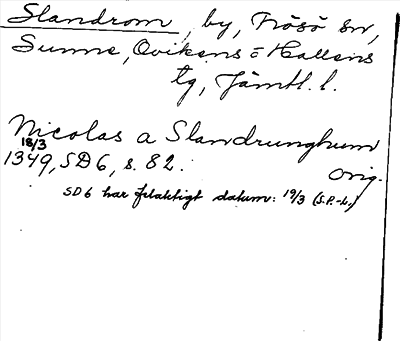 Slandrom, by, Frösö sn,
Sunne, Ovikens o Hallens
tg, Jämtl. l.
Nicolas a Slandrunghum
18/3
1349, SD 6, s. 82. orig.
SD 6 har felaktigt datum: 19/3 (S.P.-L.)